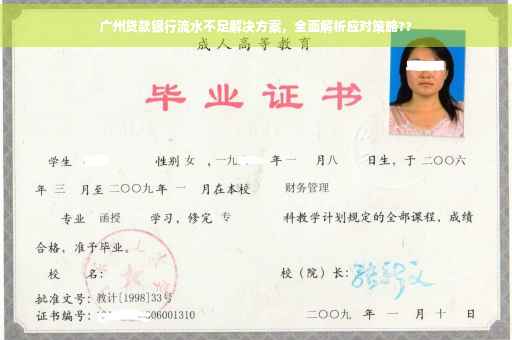 广州贷款银行流水不足解决方案，全面解析应对策略??
成人高等教育
毕业证书
学生 性别 女 ，一九 年一 月八 日生，于二〇〇六
年 三 月至二〇〇九年 一 月在本校 财务管理
专业 函授 学习，修完 专 科教学计划规定的全部课程，成绩
合格，准予毕业。
校 名： 校（院）长：
批准文号：教计[1998]33号
证书编号： 06001310 二〇〇九 年 一 月 十 日